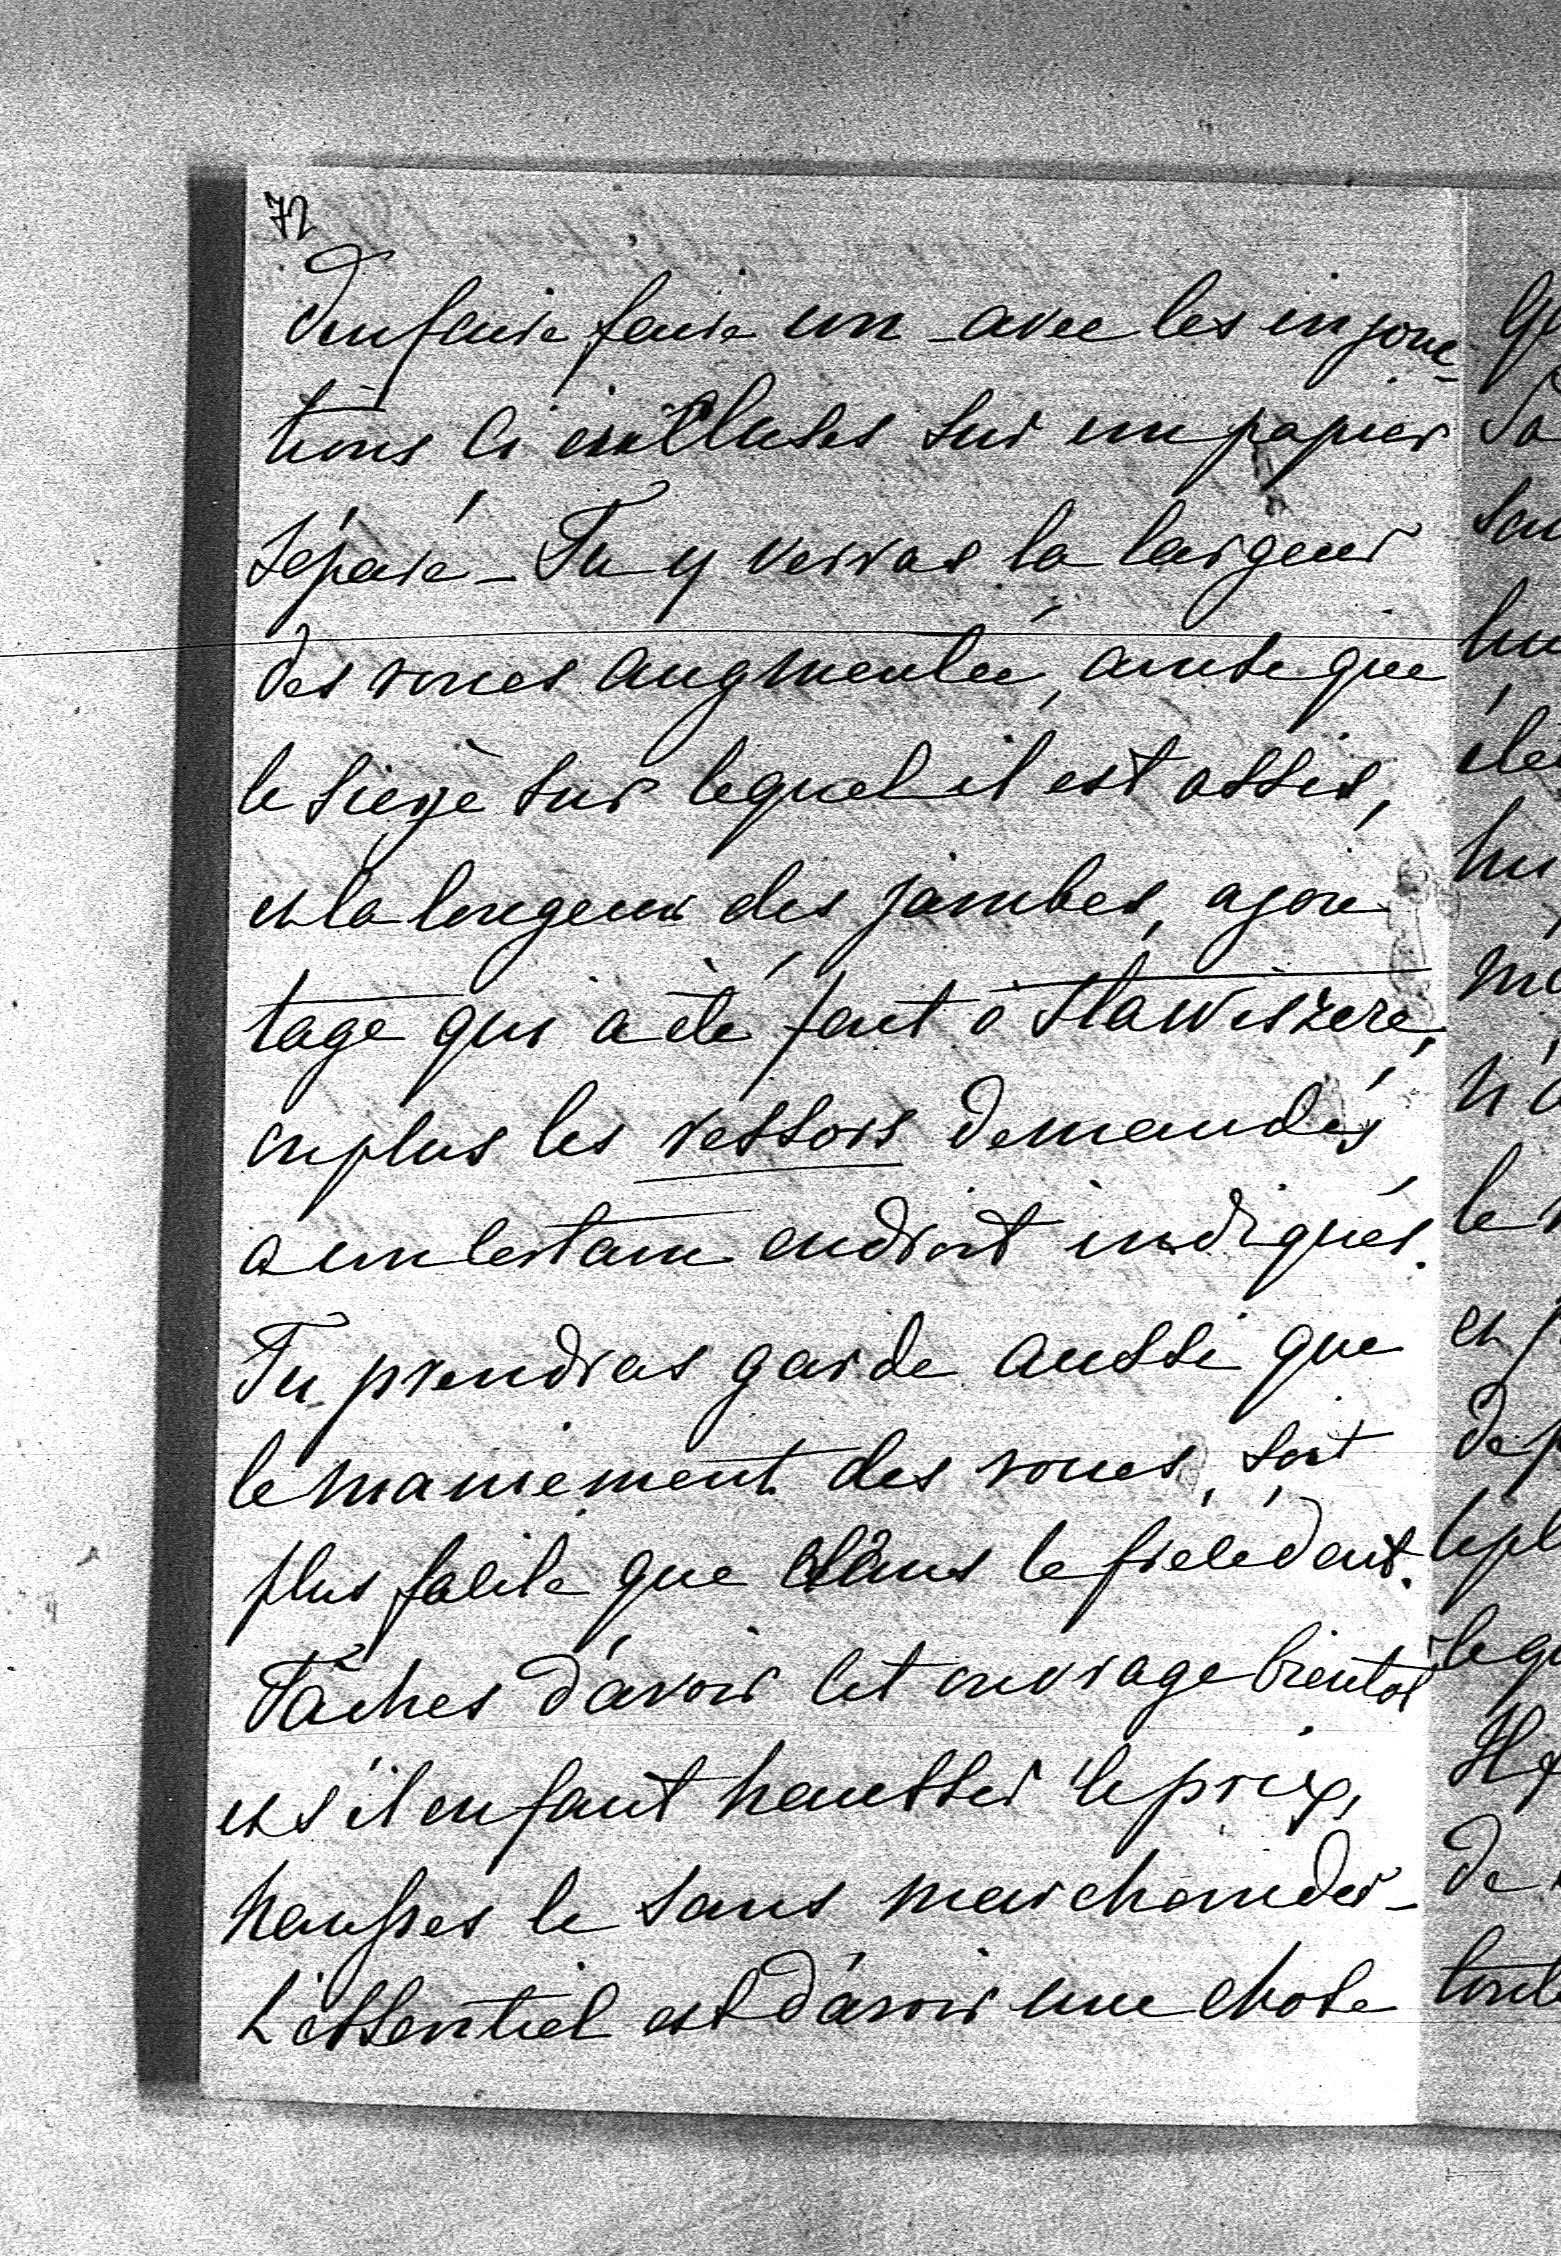 72
d'en faire faire un avec les injonc-
tions ci incluses sur un papier
séparé - Tu y verras la largeur
des roues augmentée, ainsi que
le siège sur lequel il est assis,
et la longeur des jambes, ajou
tage qui a été fait à Stawiszcze,
en plus les ressors demandés
a un certain endroit indiqués.
Tu prendras garde aussi que
le maniement des roues, soit
plus facile que dans le précédent.
Tâches d'avoir cet ouvrage bientot
et s'il en faut hausser le prix,
hausses le sans marchander -
L'essentiel est d'avoir une chose